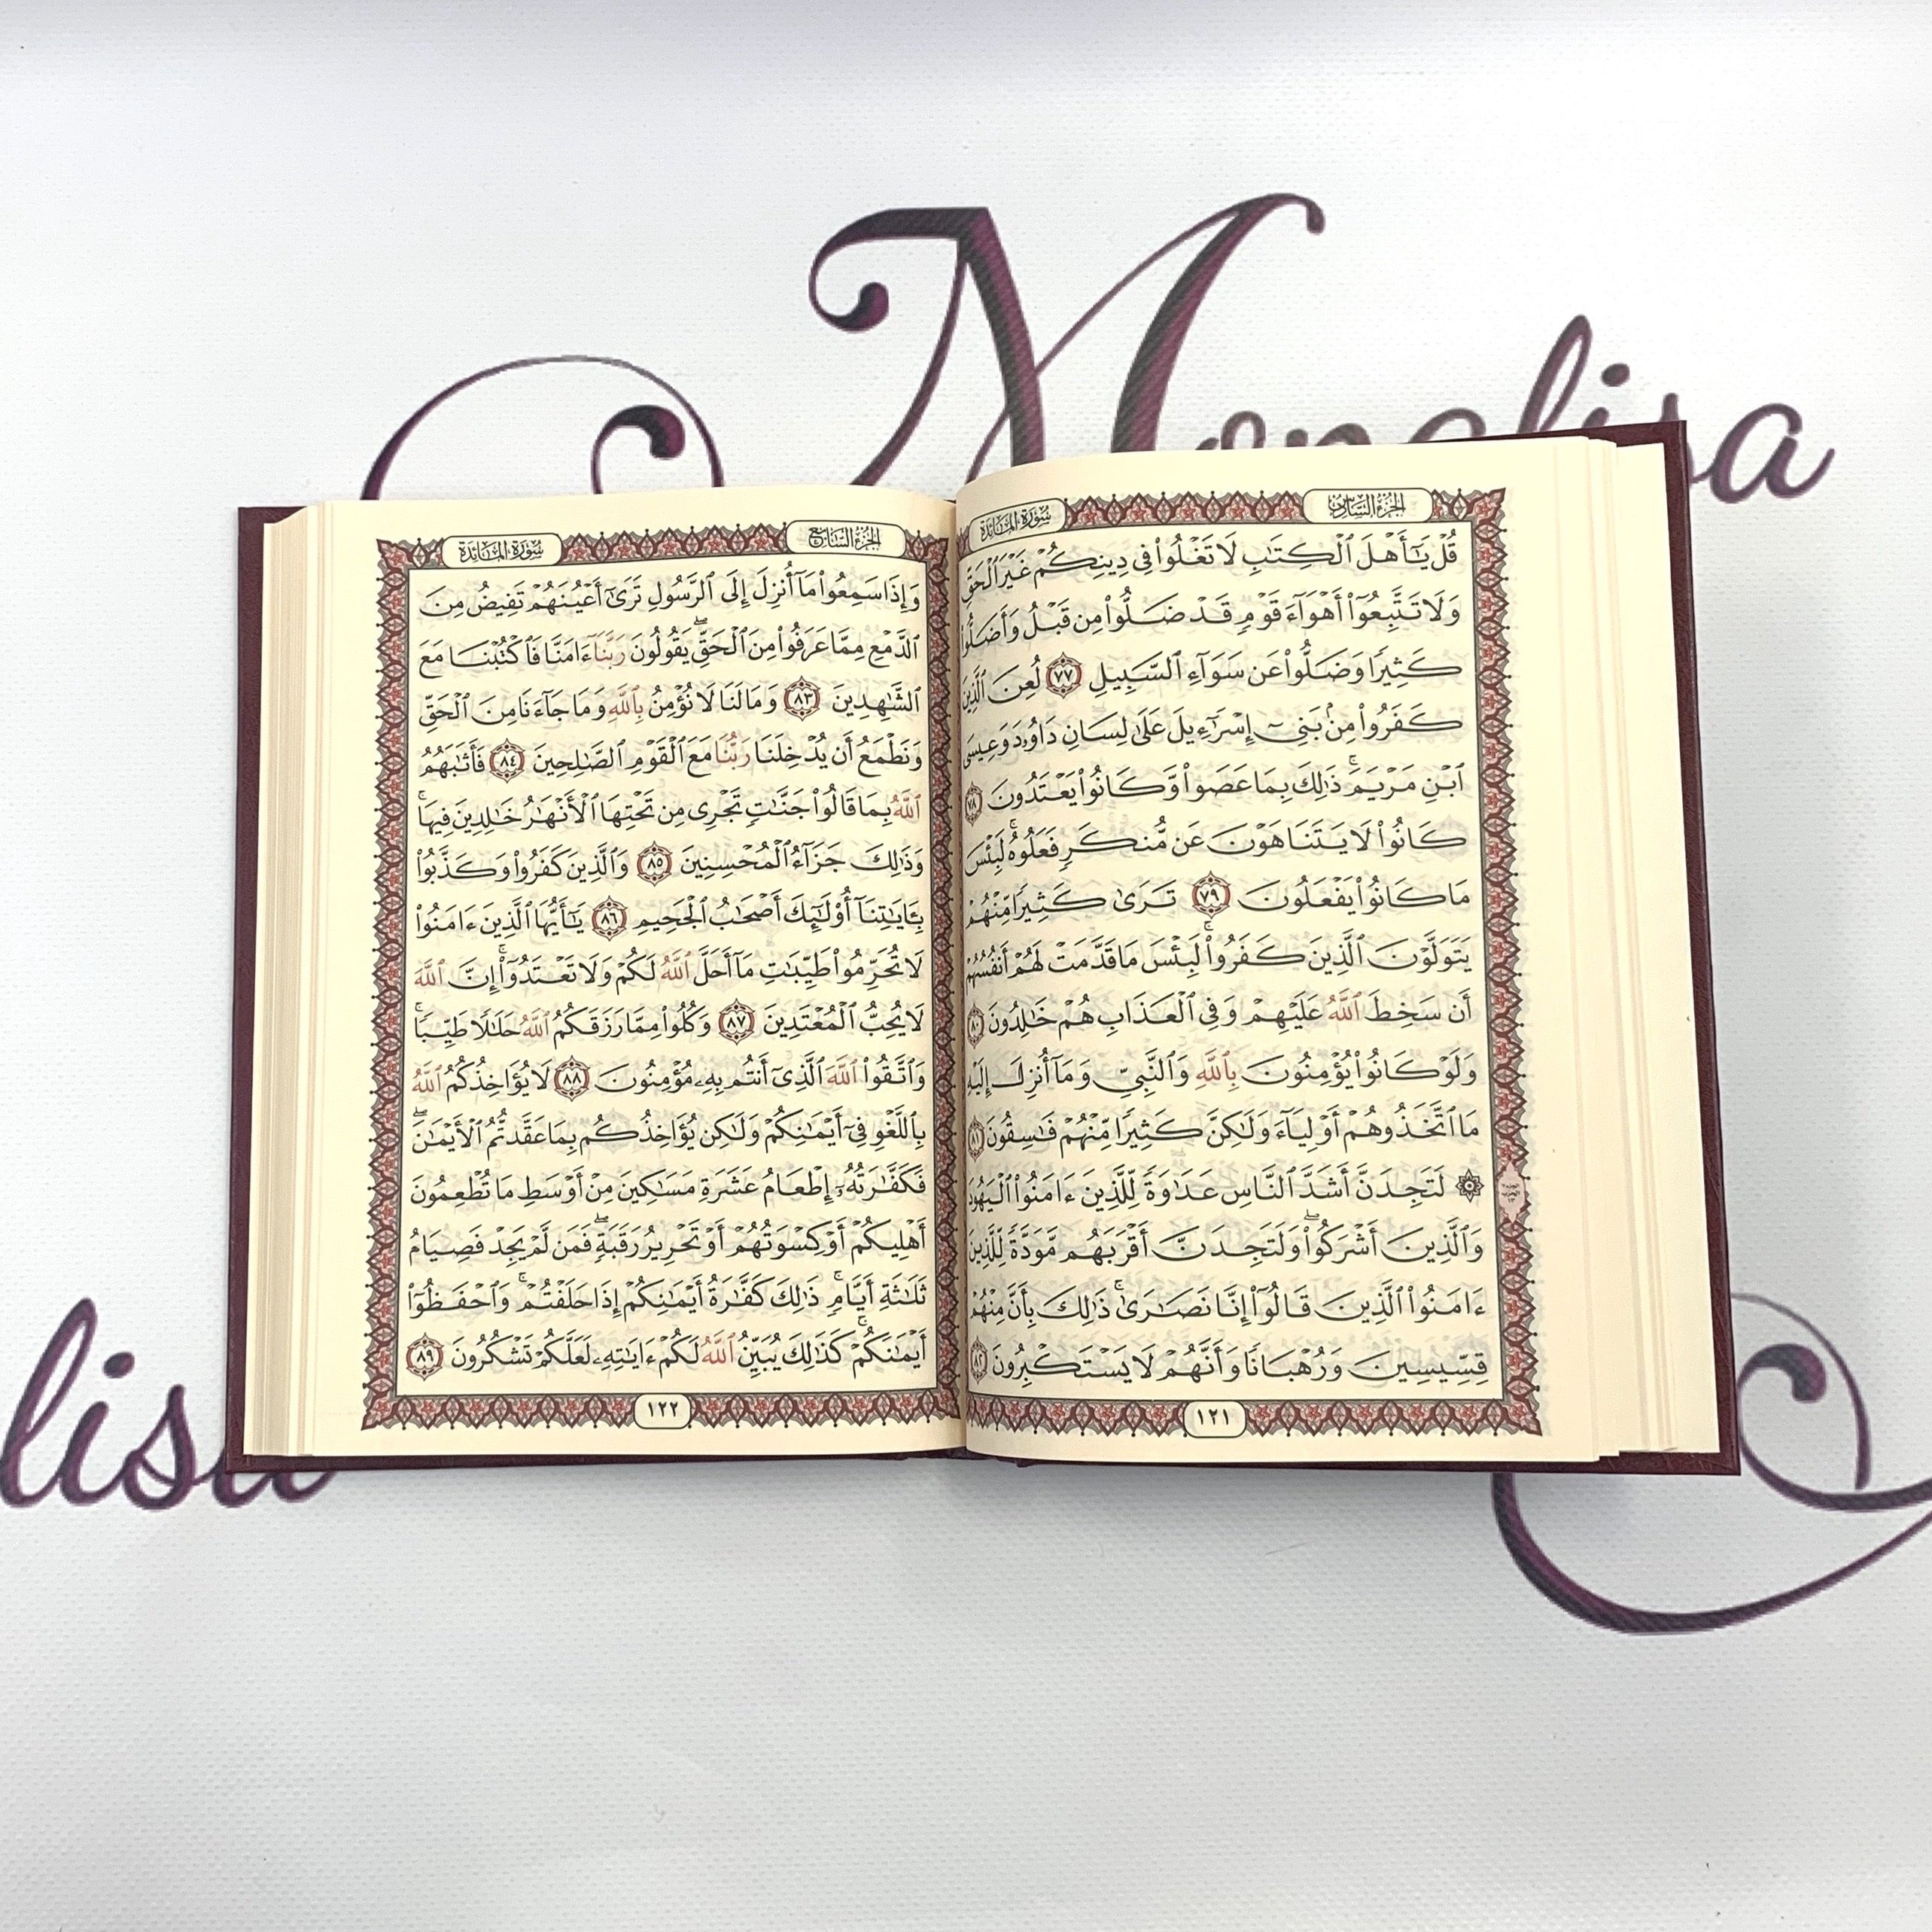 Monalisa
lisa
الجزء السادس
سورة المائدة
قُلْ يَٰٓأَهْلَ ٱلْكِتَٰبِ لَا تَغْلُوا۟ فِى دِينِكُمْ غَيْرَ ٱلْحَقِّ
وَلَا تَتَّبِعُوٓا۟ أَهْوَآءَ قَوْمٍ قَدْ ضَلُّوا۟ مِن قَبْلُ وَأَضَلُّوا۟
كَثِيرًا وَضَلُّوا۟ عَن سَوَآءِ ٱلسَّبِيلِ ٧٧ لُعِنَ ٱلَّذِينَ
كَفَرُوا۟ مِنۢ بَنِىٓ إِسْرَٰٓءِيلَ عَلَىٰ لِسَانِ دَاوُۥدَ وَعِيسَى
ٱبْنِ مَرْيَمَ ۚ ذَٰلِكَ بِمَا عَصَوا۟ وَّكَانُوا۟ يَعْتَدُونَ ٧٨
كَانُوا۟ لَا يَتَنَاهَوْنَ عَن مُّنكَرٍ فَعَلُوهُ ۚ لَبِئْسَ
مَا كَانُوا۟ يَفْعَلُونَ ٧٩ تَرَىٰ كَثِيرًا مِّنْهُمْ
يَتَوَلَّوْنَ ٱلَّذِينَ كَفَرُوا۟ ۚ لَبِئْسَ مَا قَدَّمَتْ لَهُمْ أَنفُسُهُمْ
أَن سَخِطَ ٱللَّهُ عَلَيْهِمْ وَفِى ٱلْعَذَابِ هُمْ خَٰلِدُونَ ٨٠
وَلَوْ كَانُوا۟ يُؤْمِنُونَ بِٱللَّهِ وَٱلنَّبِىِّ وَمَآ أُنزِلَ إِلَيْهِ
مَا ٱتَّخَذُوهُمْ أَوْلِيَآءَ وَلَٰكِنَّ كَثِيرًا مِّنْهُمْ فَٰسِقُونَ ٨١
۞ لَتَجِدَنَّ أَشَدَّ ٱلنَّاسِ عَدَٰوَةً لِّلَّذِينَ ءَامَنُوا۟ ٱلْيَهُودَ
وَٱلَّذِينَ أَشْرَكُوا۟ ۖ وَلَتَجِدَنَّ أَقْرَبَهُم مَّوَدَّةً لِّلَّذِينَ
ءَامَنُوا۟ ٱلَّذِينَ قَالُوٓا۟ إِنَّا نَصَٰرَىٰ ۚ ذَٰلِكَ بِأَنَّ مِنْهُمْ
قِسِّيسِينَ وَرُهْبَانًا وَأَنَّهُمْ لَا يَسْتَكْبِرُونَ ٨٢
١٢١
الجزء السابع
سورة المائدة
وَإِذَا سَمِعُوا۟ مَآ أُنزِلَ إِلَى ٱلرَّسُولِ تَرَىٰٓ أَعْيُنَهُمْ تَفِيضُ مِنَ
ٱلدَّمْعِ مِمَّا عَرَفُوا۟ مِنَ ٱلْحَقِّ ۖ يَقُولُونَ رَبَّنَآ ءَامَنَّا فَٱكْتُبْنَا مَعَ
ٱلشَّٰهِدِينَ ٨٣ وَمَا لَنَا لَا نُؤْمِنُ بِٱللَّهِ وَمَا جَآءَنَا مِنَ ٱلْحَقِّ
وَنَطْمَعُ أَن يُدْخِلَنَا رَبُّنَا مَعَ ٱلْقَوْمِ ٱلصَّٰلِحِينَ ٨٤ فَأَثَٰبَهُمُ
ٱللَّهُ بِمَا قَالُوا۟ جَنَّٰتٍ تَجْرِى مِن تَحْتِهَا ٱلْأَنْهَٰرُ خَٰلِدِينَ فِيهَا ۚ
وَذَٰلِكَ جَزَآءُ ٱلْمُحْسِنِينَ ٨٥ وَٱلَّذِينَ كَفَرُوا۟ وَكَذَّبُوا۟
بِـَٔايَٰتِنَآ أُو۟لَٰٓئِكَ أَصْحَٰبُ ٱلْجَحِيمِ ٨٦ يَٰٓأَيُّهَا ٱلَّذِينَ ءَامَنُوا۟
لَا تُحَرِّمُوا۟ طَيِّبَٰتِ مَآ أَحَلَّ ٱللَّهُ لَكُمْ وَلَا تَعْتَدُوٓا۟ ۚ إِنَّ ٱللَّهَ
لَا يُحِبُّ ٱلْمُعْتَدِينَ ٨٧ وَكُلُوا۟ مِمَّا رَزَقَكُمُ ٱللَّهُ حَلَٰلًا طَيِّبًا ۚ
وَٱتَّقُوا۟ ٱللَّهَ ٱلَّذِىٓ أَنتُم بِهِۦ مُؤْمِنُونَ ٨٨ لَا يُؤَاخِذُكُمُ ٱللَّهُ
بِٱللَّغْوِ فِىٓ أَيْمَٰنِكُمْ وَلَٰكِن يُؤَاخِذُكُم بِمَا عَقَّدتُّمُ ٱلْأَيْمَٰنَ ۖ
فَكَفَّٰرَتُهُۥٓ إِطْعَامُ عَشَرَةِ مَسَٰكِينَ مِنْ أَوْسَطِ مَا تُطْعِمُونَ
أَهْلِيكُمْ أَوْ كِسْوَتُهُمْ أَوْ تَحْرِيرُ رَقَبَةٍ ۖ فَمَن لَّمْ يَجِدْ فَصِيَامُ
ثَلَٰثَةِ أَيَّامٍ ۚ ذَٰلِكَ كَفَّٰرَةُ أَيْمَٰنِكُمْ إِذَا حَلَفْتُمْ ۚ وَٱحْفَظُوٓا۟
أَيْمَٰنَكُمْ ۚ كَذَٰلِكَ يُبَيِّنُ ٱللَّهُ لَكُمْ ءَايَٰتِهِۦ لَعَلَّكُمْ تَشْكُرُونَ ٨٩
١٢٢